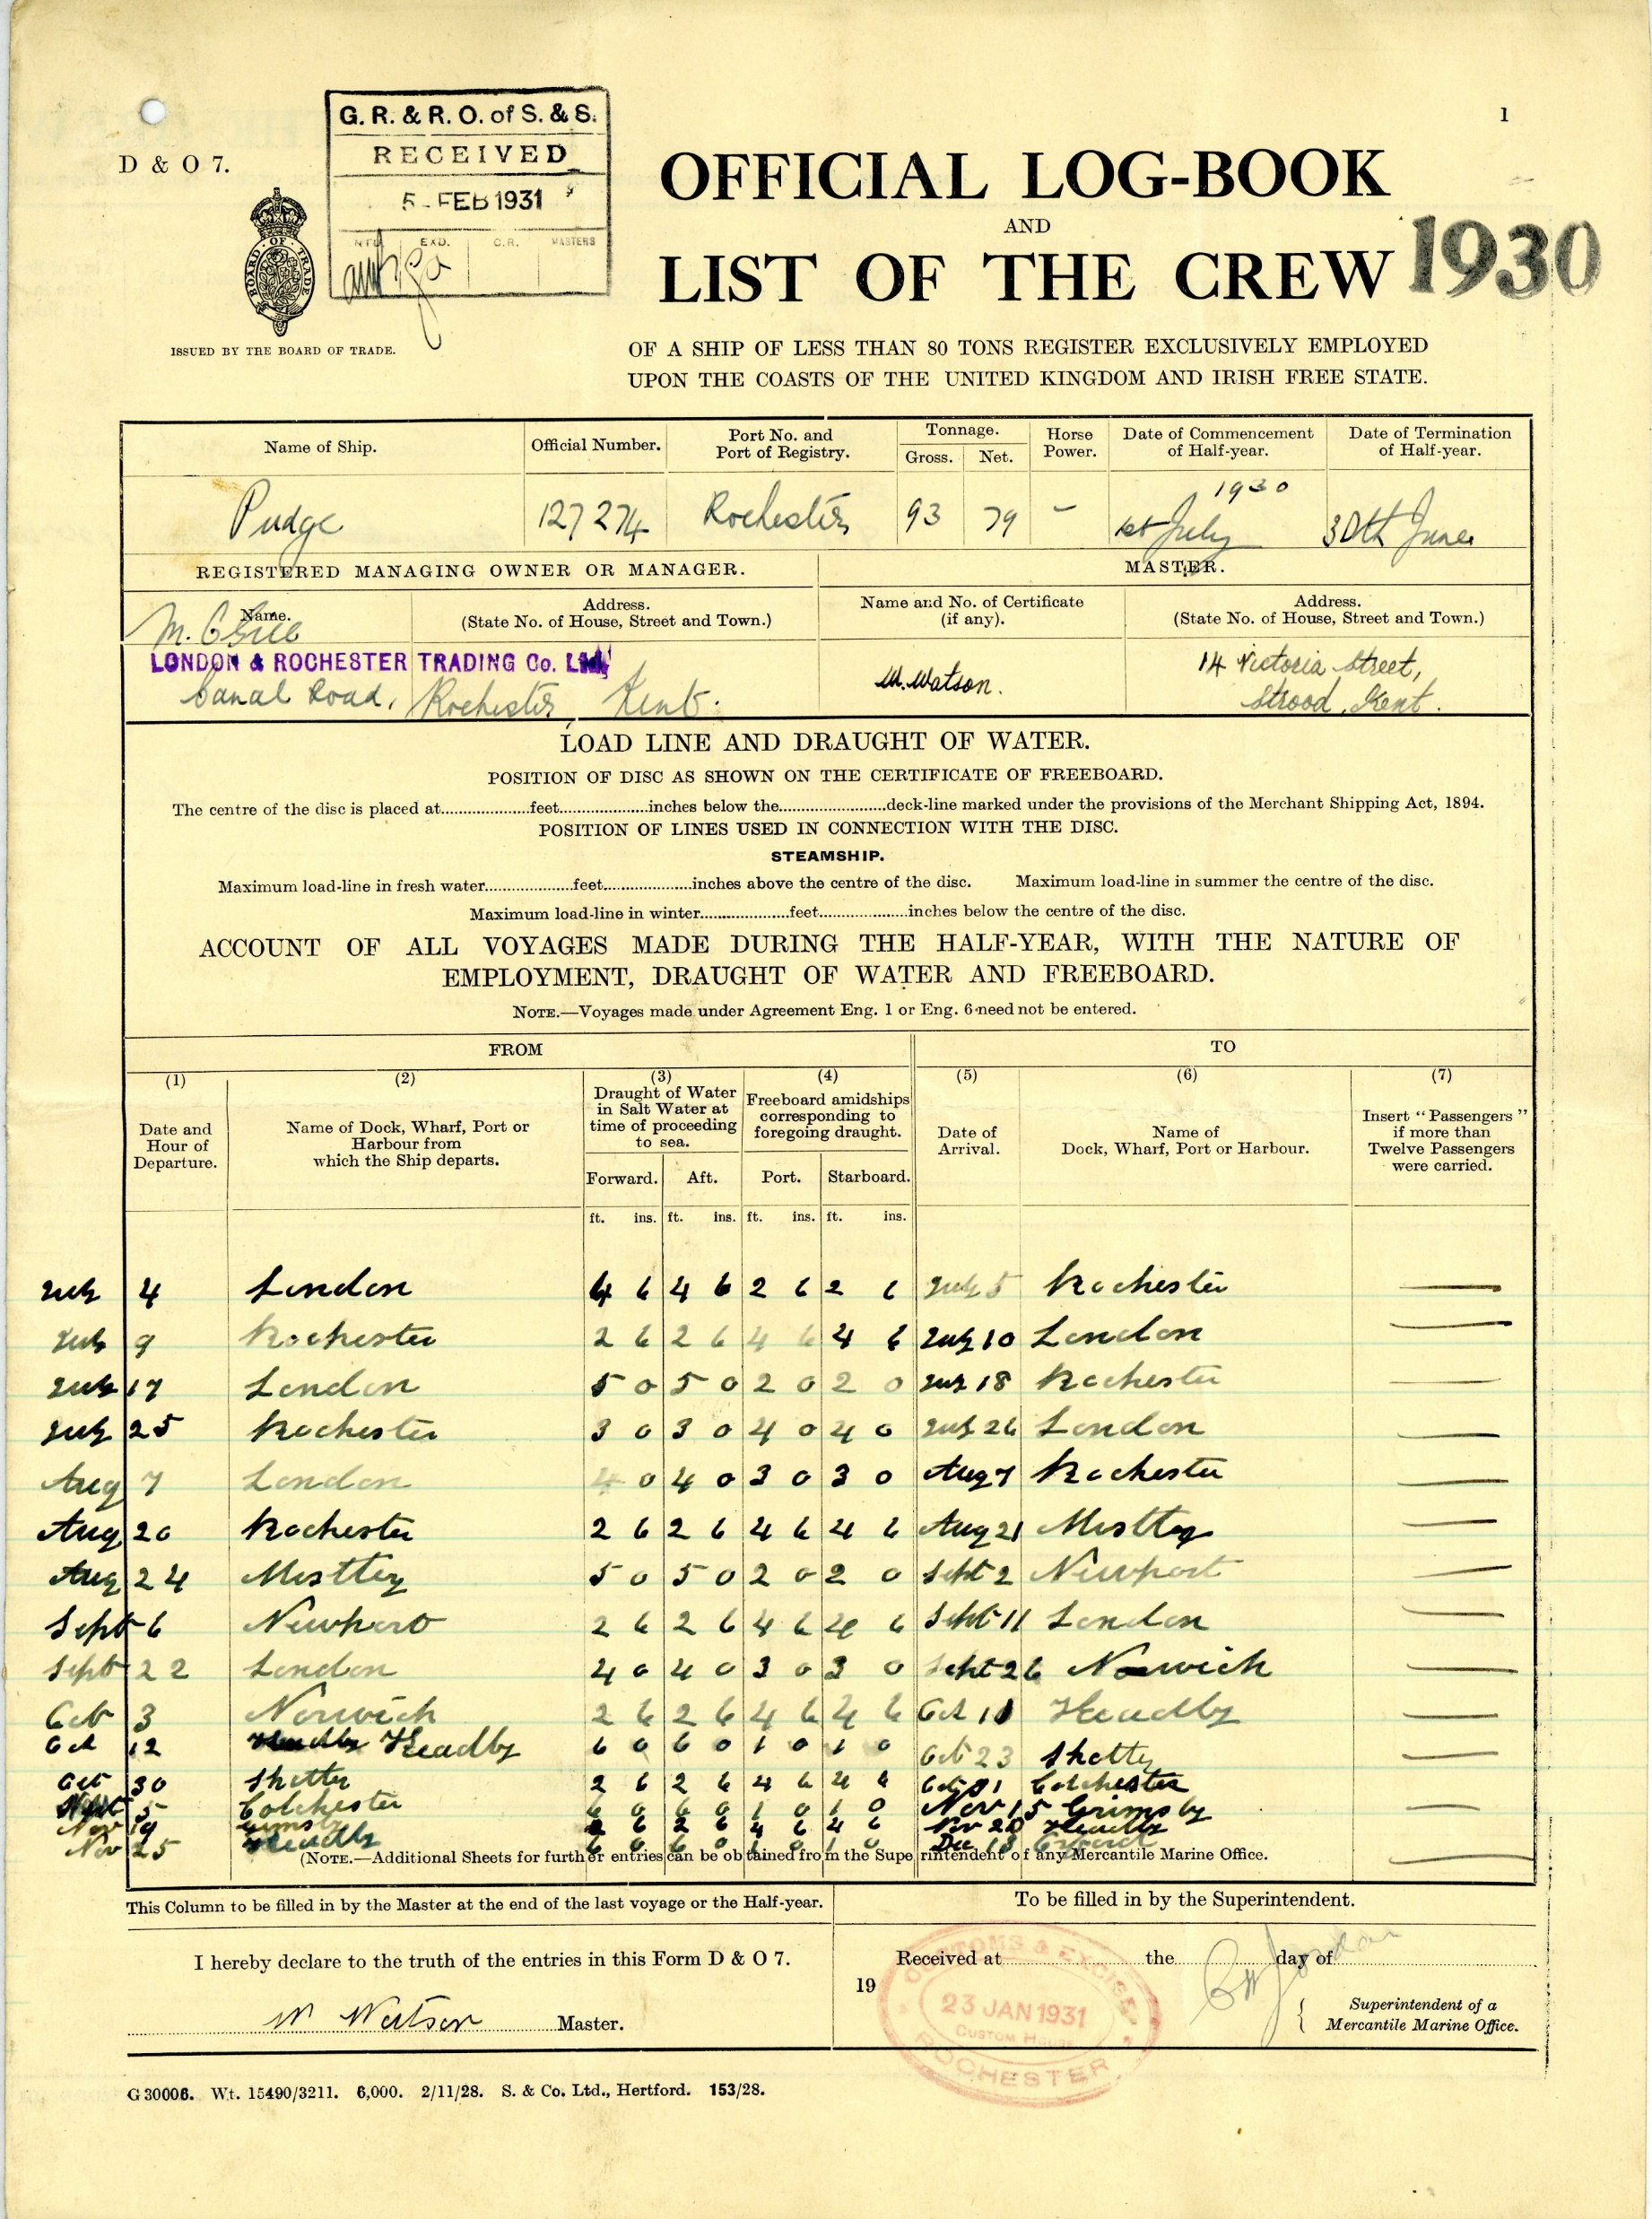 1
D & O 7.
G. R. & R. O. of S. & S.
RECEIVED
5 - FEB 1931
NTG EXD. C.R. MASTERS
BOARD OF TRADE
ISSUED BY THE BOARD OF TRADE.
OFFICIAL LOG-BOOK
AND
LIST OF THE CREW 1930
OF A SHIP OF LESS THAN 80 TONS REGISTER EXCLUSIVELY EMPLOYED
UPON THE COASTS OF THE UNITED KINGDOM AND IRISH FREE STATE.
Name of Ship. Official Number. Port No. and Port of Registry. Tonnage. Gross. Net. Horse Power. Date of Commencement of Half-year. Date of Termination of Half-year.
1930
Pudge 127274 Rochester 93 79 – 1st July 30th June
REGISTERED MANAGING OWNER OR MANAGER. MASTER.
Name. Address. (State No. of House, Street and Town.) Name and No. of Certificate (if any). Address. (State No. of House, Street and Town.)
M.
LONDON & ROCHESTER TRADING Co. Ltd
Canal Road, Rochester, Kent.
W. Watson.
14 Victoria Street,
Strood, Kent.
LOAD LINE AND DRAUGHT OF WATER.
POSITION OF DISC AS SHOWN ON THE CERTIFICATE OF FREEBOARD.
The centre of the disc is placed at....................feet....................inches below the........................deck-line marked under the provisions of the Merchant Shipping Act, 1894.
POSITION OF LINES USED IN CONNECTION WITH THE DISC.
STEAMSHIP.
Maximum load-line in fresh water....................feet....................inches above the centre of the disc. Maximum load-line in summer the centre of the disc.
Maximum load-line in winter....................feet....................inches below the centre of the disc.
ACCOUNT OF ALL VOYAGES MADE DURING THE HALF-YEAR, WITH THE NATURE OF
EMPLOYMENT, DRAUGHT OF WATER AND FREEBOARD.
NOTE.—Voyages made under Agreement Eng. 1 or Eng. 6 need not be entered.
FROM TO
(1) (2) (3) (4) (5) (6) (7)
Date and Hour of Departure. Name of Dock, Wharf, Port or Harbour from which the Ship departs. Draught of Water in Salt Water at time of proceeding to sea. Freeboard amidships corresponding to foregoing draught. Date of Arrival. Name of Dock, Wharf, Port or Harbour. Insert "Passengers" if more than Twelve Passengers were carried.
Forward. Aft. Port. Starboard.
ft. ins. ft. ins. ft. ins. ft. ins.
July 4 London 4 6 4 6 2 6 2 6 July 5 Rochester —
July 9 Rochester 2 6 2 6 4 6 4 6 July 10 London —
July 17 London 5 0 5 0 2 0 2 0 July 18 Rochester —
July 25 Rochester 3 0 3 0 4 0 4 0 July 26 London —
Aug 7 London 4 0 4 0 3 0 3 0 Aug 7 Rochester —
Aug 20 Rochester 2 6 2 6 4 6 4 6 Aug 21 Mistley —
Aug 24 Mistley 5 0 5 0 2 0 2 0 Sept 2 Newport —
Sept 6 Newport 2 6 2 6 4 6 4 6 Sept 11 London —
Sept 22 London 4 0 4 0 3 0 3 0 Sept 26 Norwich —
Oct 3 Norwich 2 6 2 6 4 6 4 6 Oct 10 Keadby —
Oct 12 Keadby 6 0 6 0 1 0 1 0 Oct 23 —
Oct 30 2 6 2 6 4 6 4 6 Oct 31 Colchester
5 Colchester 6 0 6 0 1 0 1 0 Nov 15 Grimsby —
Nov 19 Grimsby 2 6 2 6 4 6 4 6 Nov 20 Keadby
Nov 25 Keadby 6 0 6 0 1 0 1 0 Dec 13 —
(NOTE.—Additional Sheets for further entries can be obtained from the Superintendent of any Mercantile Marine Office.
This Column to be filled in by the Master at the end of the last voyage or the Half-year. To be filled in by the Superintendent.
I hereby declare to the truth of the entries in this Form D & O 7.
W Watson Master.
Received at the day of
19
Superintendent of a
Mercantile Marine Office.
CUSTOMS & EXCISE
23 JAN 1931
CUSTOM HOUSE
ROCHESTER
G 30006. Wt. 15490/3211. 6,000. 2/11/28. S. & Co. Ltd., Hertford. 153/28.